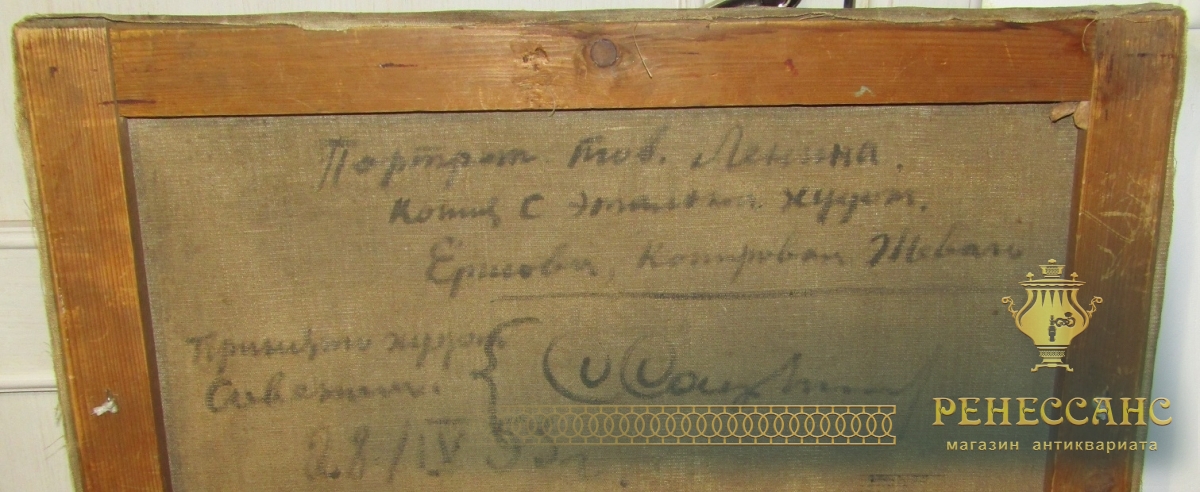 Портрет тов. Ленина.
Копия с эталона худож.
Ермова, Копировал Жевало
Принято худож
Советом.
28/IV 53 г.
РЕНЕССАНС
магазин антиквариата